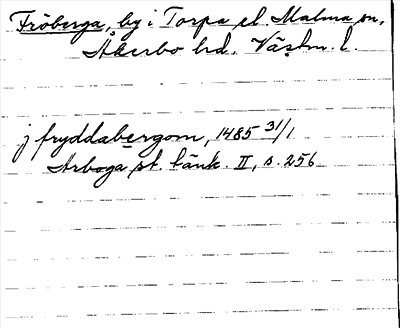 Fröberga, by i Torpa el. Malma sn,
Åkerbo hd. Västm. l.
j fryddabergom, 1485 31/1
Arboga st. tänk. II, s. 256